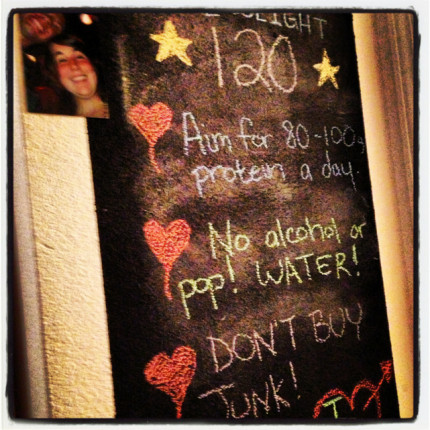 LIGHT
120
Aim for 80-100g
protein a day.
No alcohol or
pop! WATER!
DON'T BUY
JUNK!